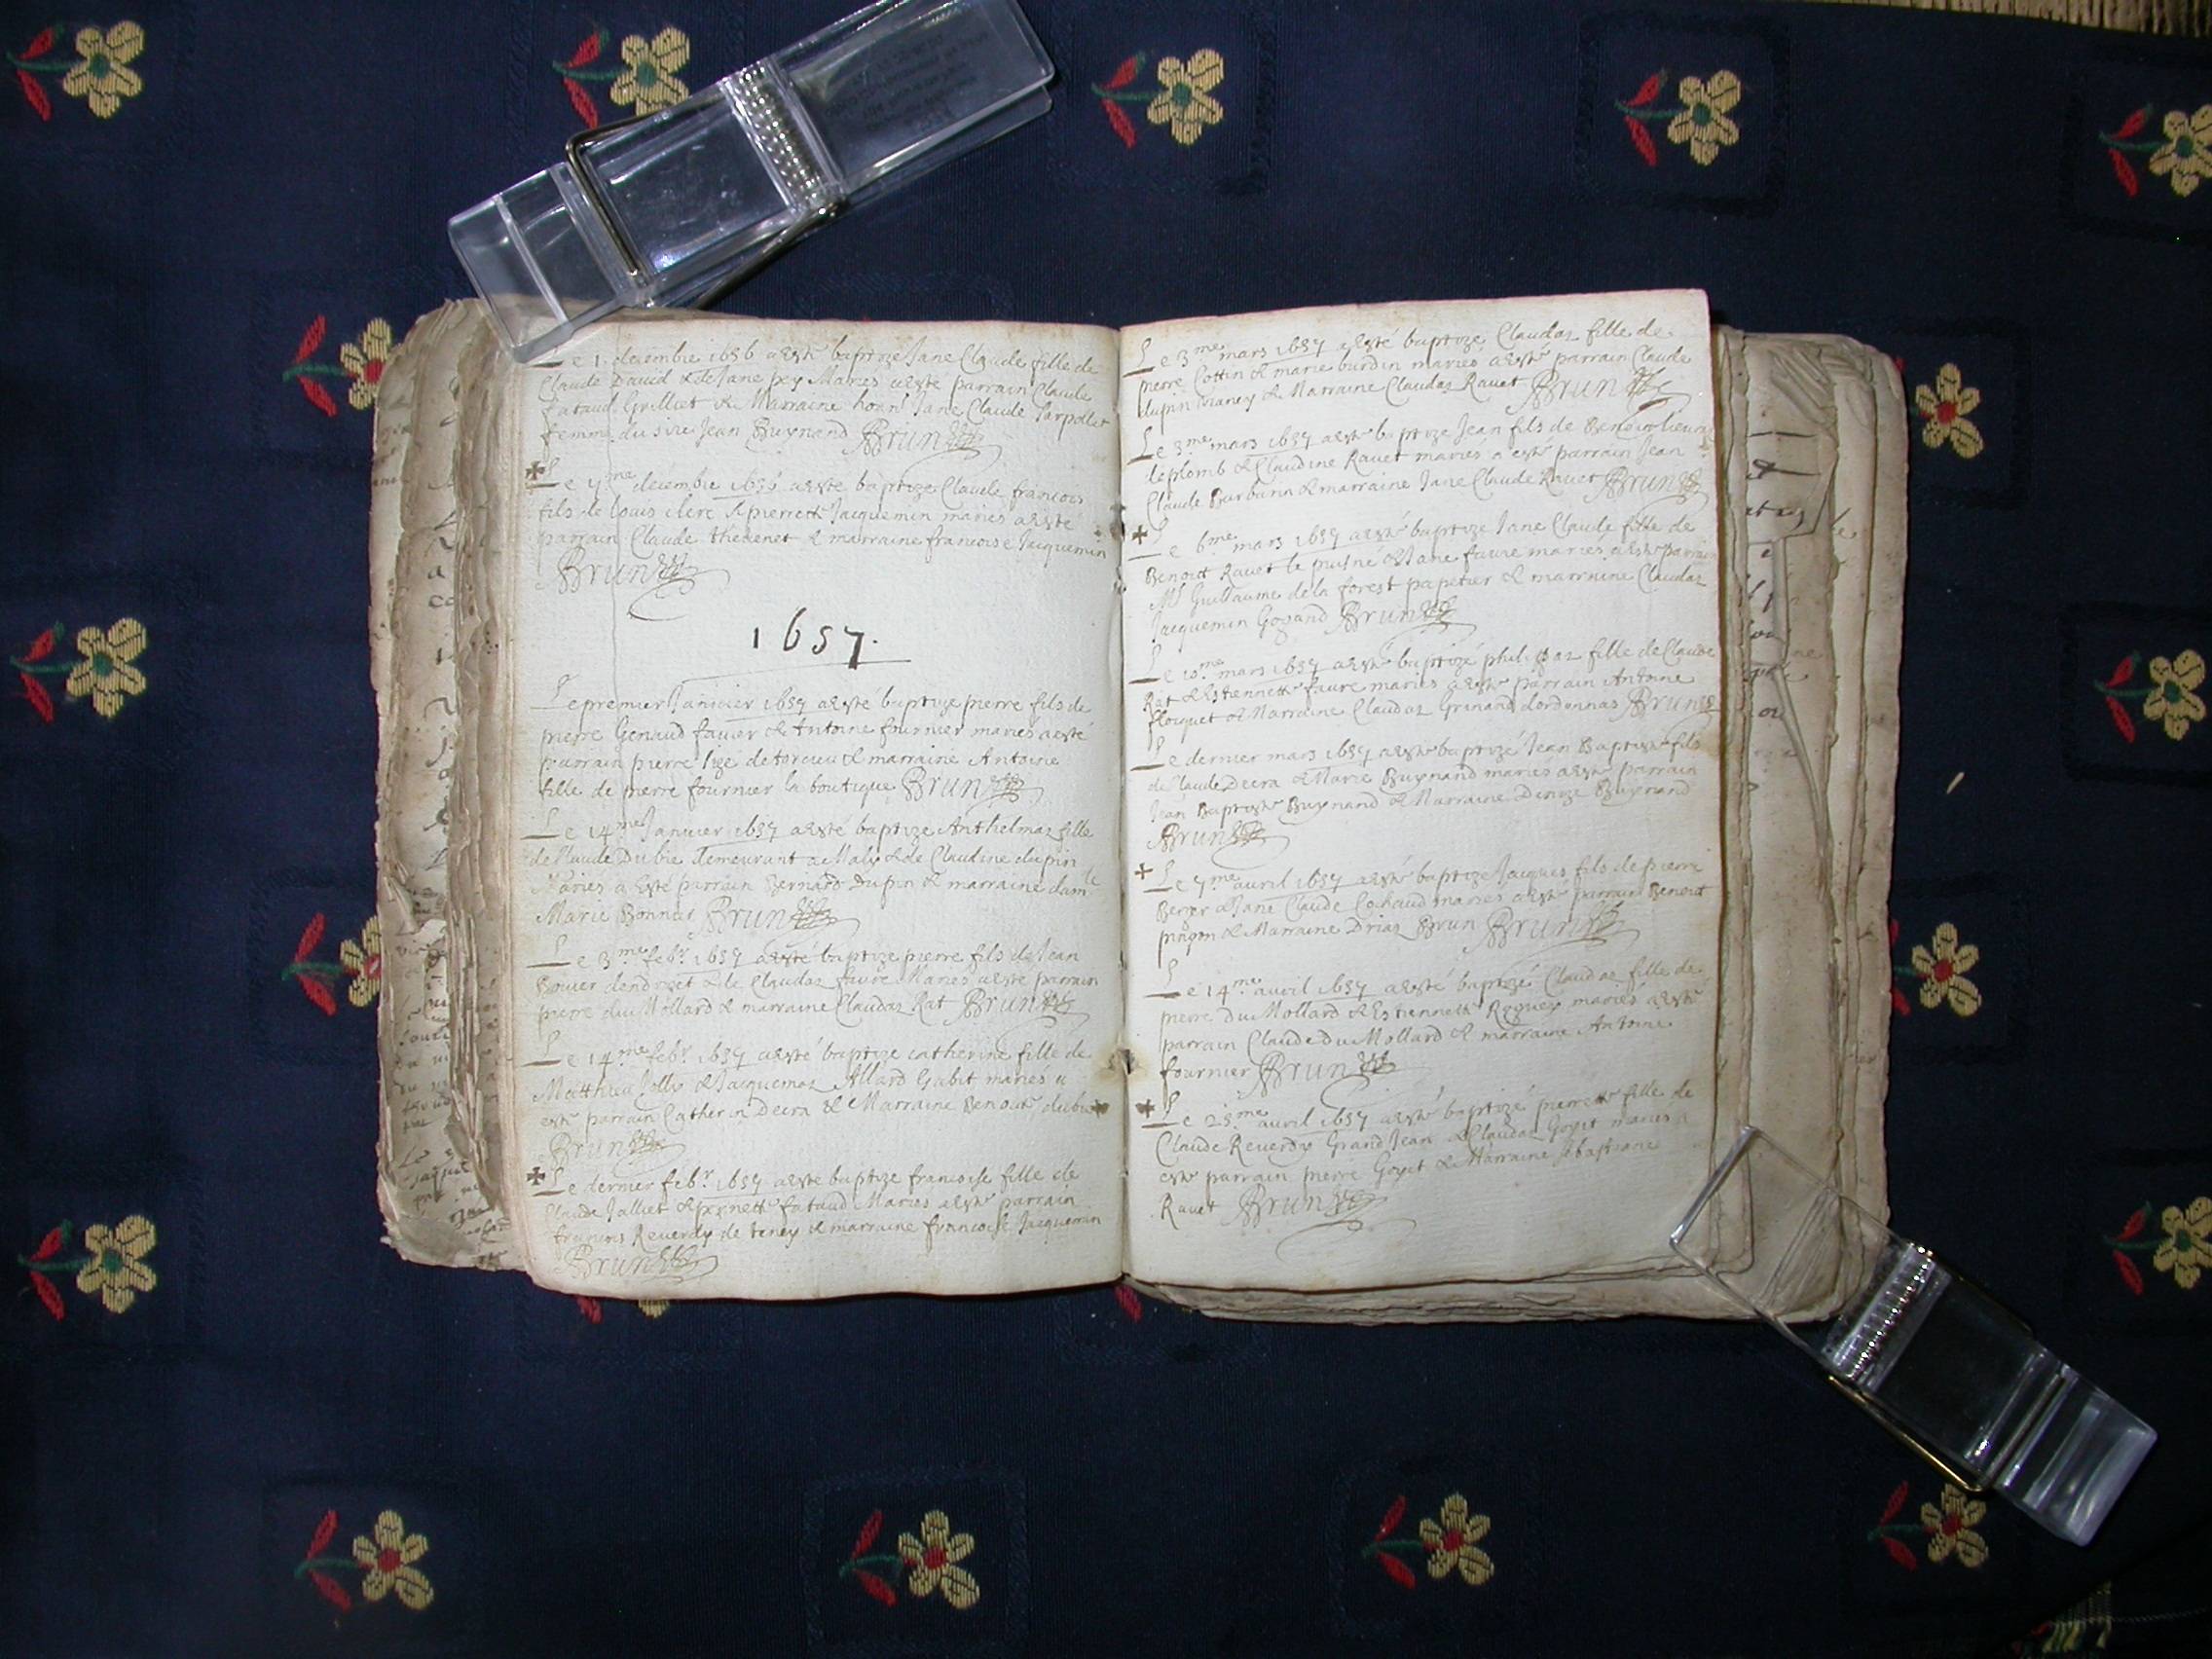 Le 1. decembre 1656 a esté baptize Jane Claude fille de
Claude David & de Jane pey Mariés a esté parrain Claude
fataud Grilliet & Marraine honn. Jane Claude Sarpollet
femme du sire Jean Buynand Brun
Le 7me decembre 1656 a esté baptize Claude francois
fils de louis clerc & pierrette Jacquemin mariés a esté
parrain Claude thevenet & marraine francoise Jacquemin
Brun
1657.
Le premier Janvier 1657 a esté baptize pierre fils de
pierre Genaud favier & Antoine fournier mariés a esté
parrain pierre lize de torcieu & marraine Antoine
fille de pierre fournier la boutique Brun
Le 14me Janvier 1657 a esté baptize Anthelmaz fille
de Claude Dubie demeurant a Malix & de Claudine dupin
Mariés a esté parrain Bernard Dupin & marraine damle
Marie Bonnet Brun
Le 3me febr. 1657 a esté baptize pierre fils de Jean
Bovier dendroset & de Claudaz favre Mariés a esté parrain
pierre du Mollard & marraine Claudaz Rat Brun
Le 14me febr. 1657 a esté baptize catherine fille de
Matthieu Jolly & Jacquemaz Allard Gabit mariés a
esté parrain Catherin Decra & Marraine Benoite dubie
Brun
Le dernier febr. 1657 a esté baptize francoise fille de
Claude Jalliet & pernette fataud Mariés a esté parrain
francois Reverdy de teney & marraine francoise Jacquemin
Brun
Le 3me mars 1657 a esté baptize Claudaz fille de
pierre Cottin & marie burdin mariés a esté parrain Claude
dupin & Marraine Claudaz Ravet Brun
Le 3me mars 1657 a esté baptize Jean fils de Benoit
deplomb & Claudine Ravet mariés a esté parrain Jean
Claude Burbarin & marraine Jane Claude Ravet Brun
Le 6me mars 1657 a esté baptize Jane Claude fille de
Benoitt Ravet le puisné & Jane favre mariés a esté parrain
Mr Guillaume dela forest papetier & marraine Claudaz
Jacquemin Goyand Brun
Le 10me mars 1657 a esté baptizé philipaz fille de Claude
Rat & Estiennette favre mariés a esté parrain Antoine
floquet & Marraine Claudaz Grinand dordonnas Brun
Le dernier mars 1657 a esté baptizé Jean Baptiste fils
de Claude Decra & Marie Buynand mariés a esté parrain
Jean Baptiste Buynand & Marraine Denize Buynand
Brun
Le 7me avril 1657 a esté baptize Jacques fils de pierre
Berger & Jane Claude Cochaud mariés a esté parrain Benoit
pingon & Marraine Driaz Brun Brun
Le 14me avril 1657 a esté baptizé Claudaz fille de
pierre Du Mollard & Estiennette Roguex mariés a esté
parrain Claude du Mollard & marraine Antoine
fournier Brun
Le 25me avril 1657 a esté baptizé pierrette fille de
Claude Reverdy Grand Jean & Claudaz Goyet mariés a
esté parrain pierre Goyet & Marraine sebastiane
Ravet Brun